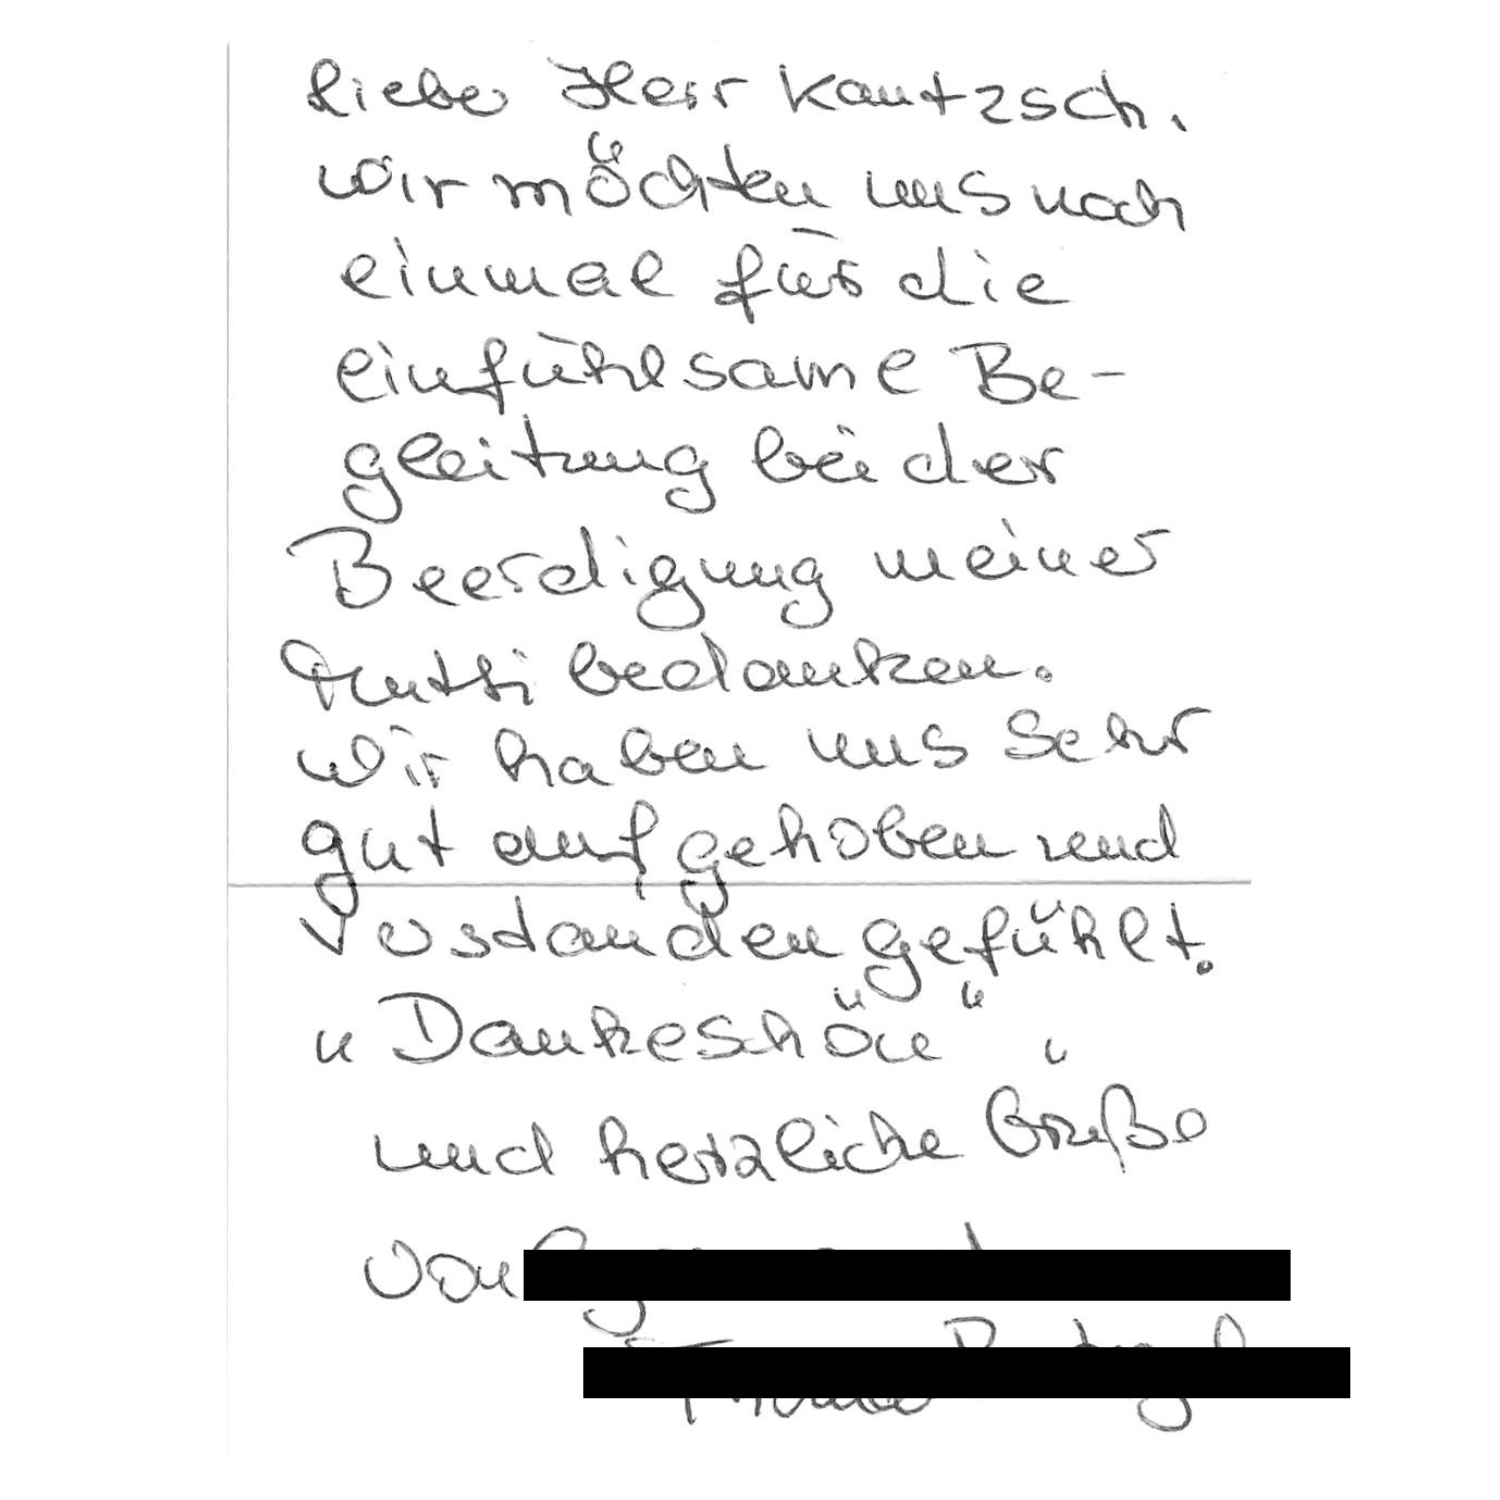 Lieber Herr Kautzsch,
wir möchten uns noch
einmal für die
einfühlsame Be-
gleitung bei der
Beerdigung meiner
Mutti bedanken.
Wir haben uns sehr
gut aufgehoben und
verstanden gefühlt.
"Dankeschön"
und herzliche Grüße
von